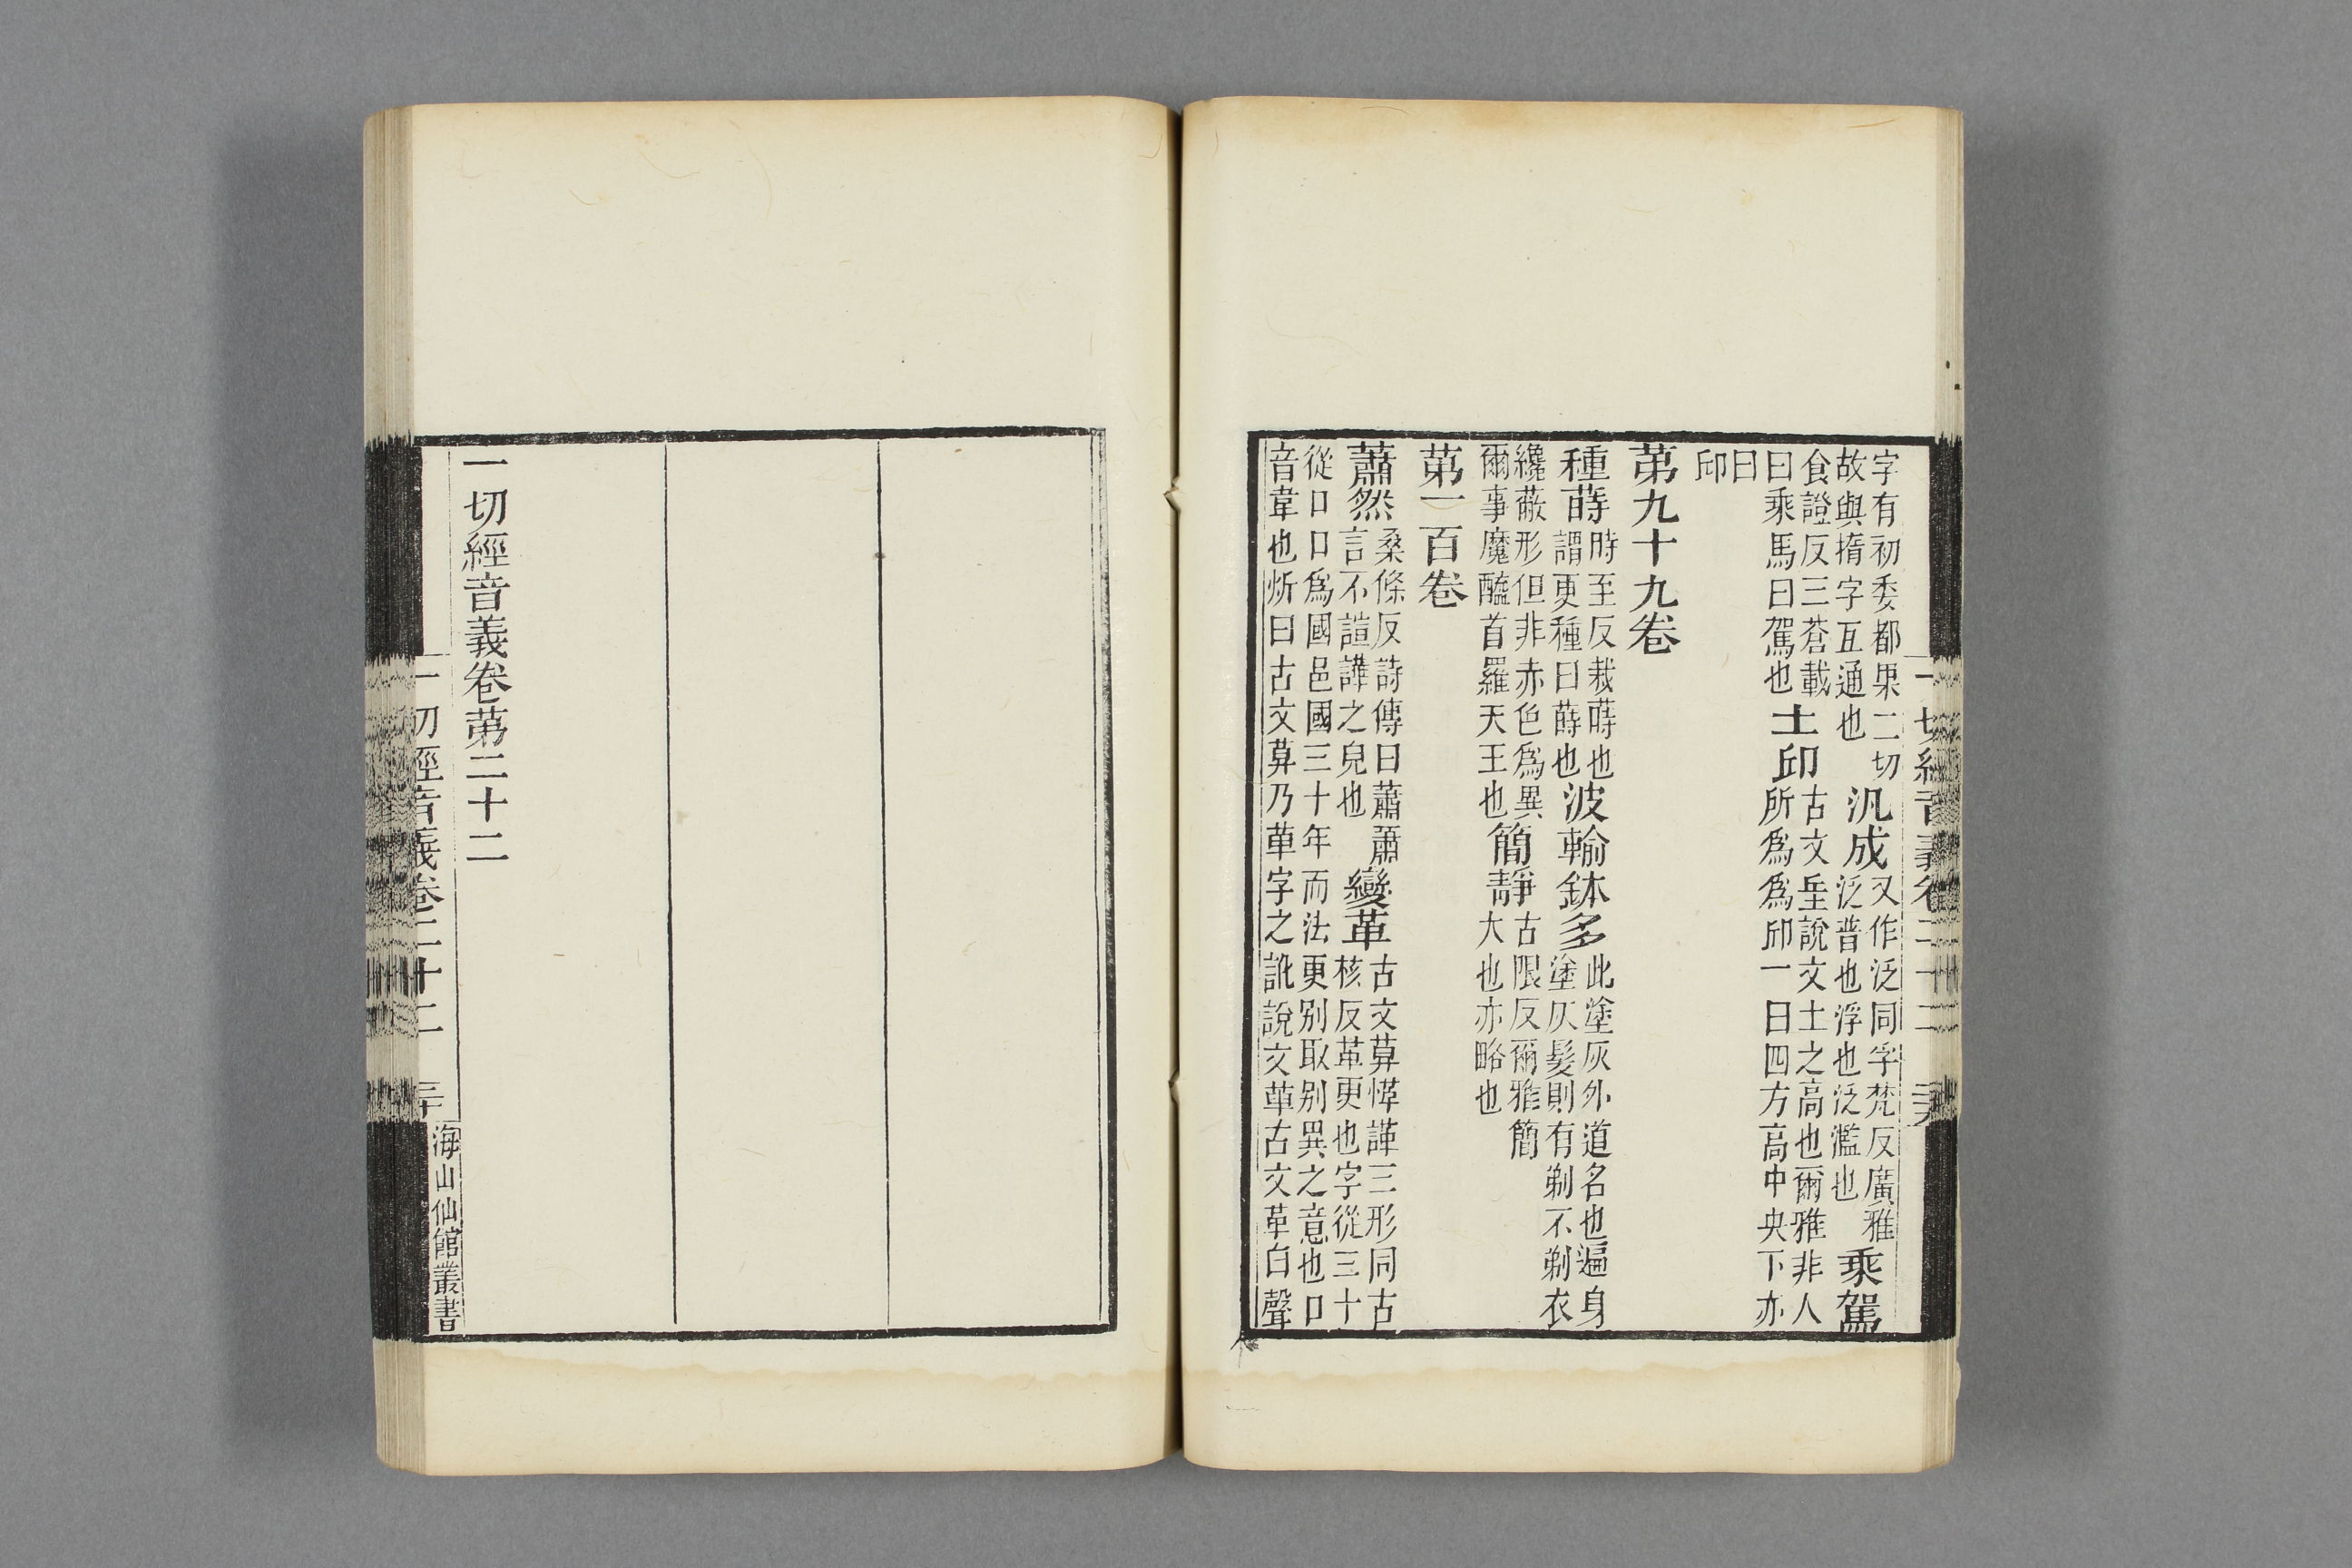 字有初委都果二切
故與揣字亙通也
汎成
又作泛同孚梵反廣雅
泛普也浮也泛濫也
乘駕
食證反三蒼載
曰乘馬曰駕也
土邱
古文丠說文土之高也爾雅非人
所爲爲邱一曰四方高中央下亦
曰
邱
第九十九卷
種蒔
時至反栽蒔也
謂更種曰蒔也
波輸鉢多
此塗灰外道名也遍身
塗灰髮則有剃不剃衣
纔蔽形但非赤色爲異
爾事魔醯首羅天王也
簡靜
古限反爾雅簡
大也亦略也
第一百卷
蕭然
桑條反詩傳曰蕭蕭
言不諠譁之皃也
變革
古文䓸愅諽三形同古
核反革更也字從三十
從口口爲國邑國三十年而法更別取別異之意也口
音韋也炘曰古文䓸乃革字之訛說文革古文革臼聲
一切經音義卷二十二
一切經音義卷第二十二
一切經音義卷二十二
三十
海山仙館叢書